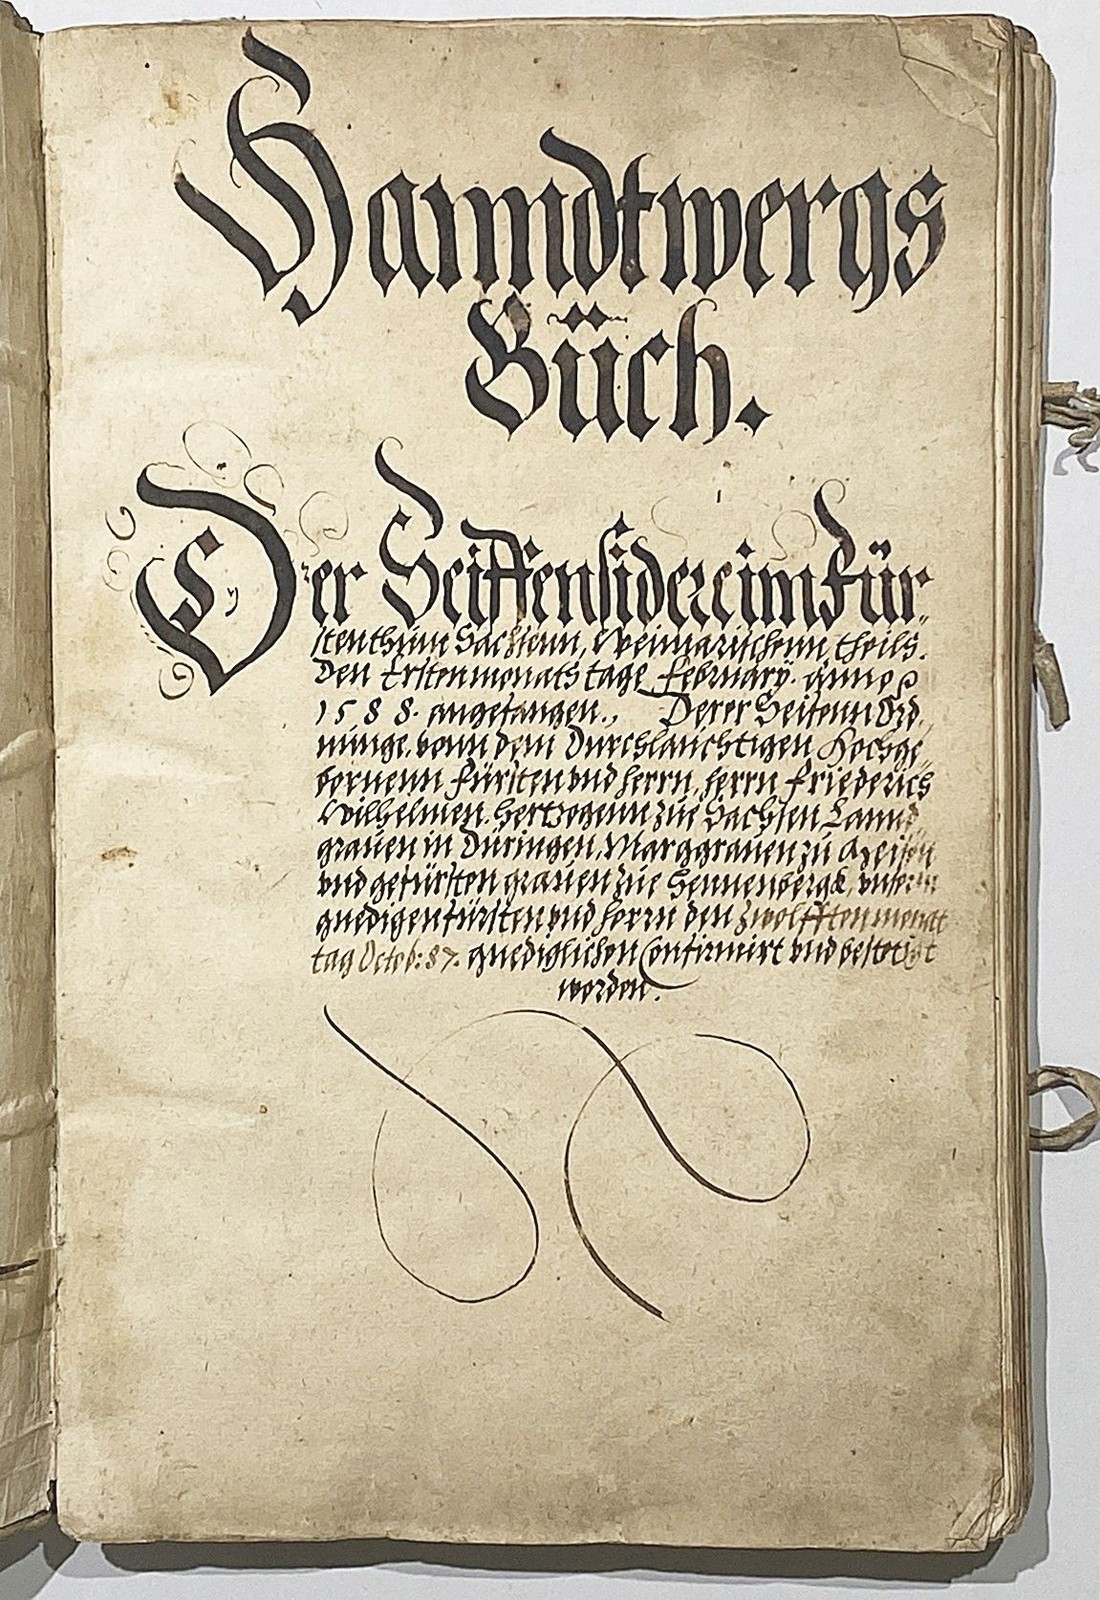 Hanndtwergs
Büch.
Der Seiffensider eim Für-
stenthum Sachsenn, Weimarischenn theils.
Den Ersten monats tage February. anno
1588. angefangen., Derer Seifenn Ord
nunge. vonn dem Durchlauchtigen Hochge
bornenn Fürsten vnd herrn, herrn Friederich
Wilhelmen. Hertzogenn züe Sachsen Lannd
grauen in Düringen, Marggrauen zü Meisen
vnd gefürsten grauen züe Hennenbergk, vnserm
gnedigen fürsten vnd herrn den zwolfften monat
tag Octob: 87. gnediglichen Confirmirt vnd bestetigt
worden.